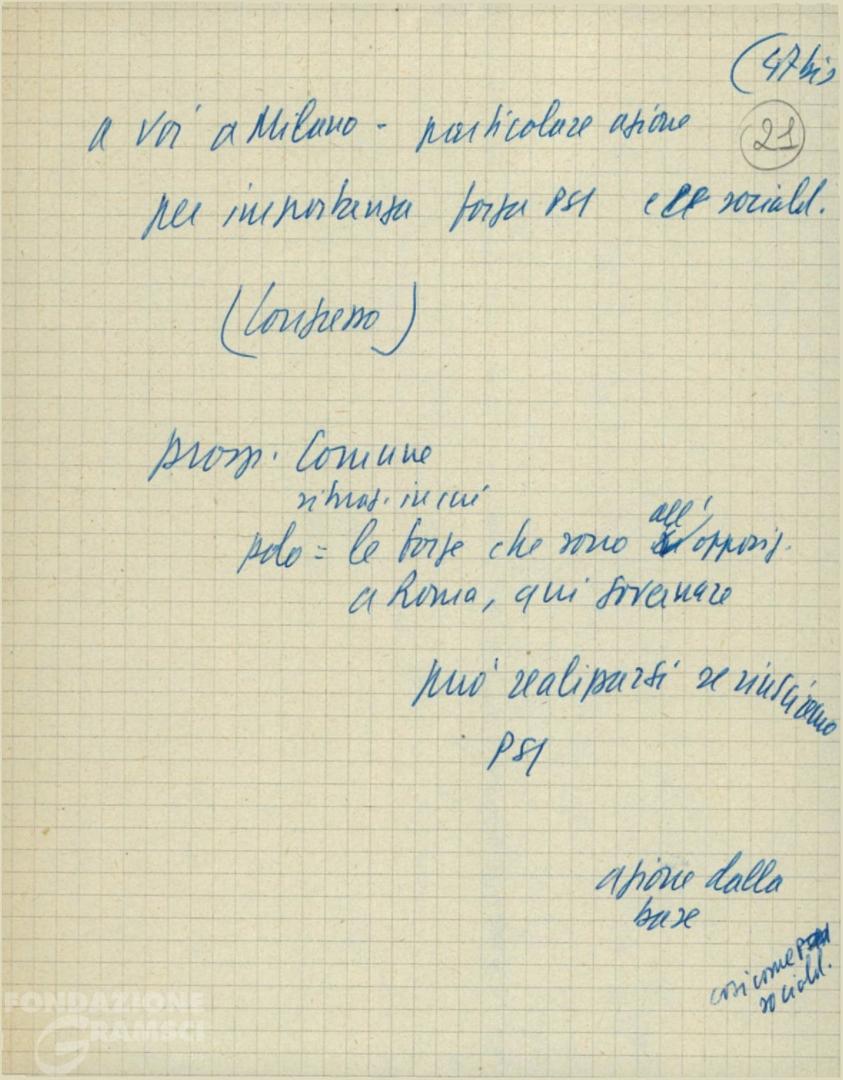 (47 bis
21
a voi a Milano - particolare azione
per importanza forza PSI e sociald.
(Congresso)
prosp. Comune
in cui
polo = le forze che sono all' opposiz.
a Roma, qui governare
può realizzarsi se riusciremo
PSI
azione dalla
base
così come
sociald.
FONDAZIONE
GRAMSCI